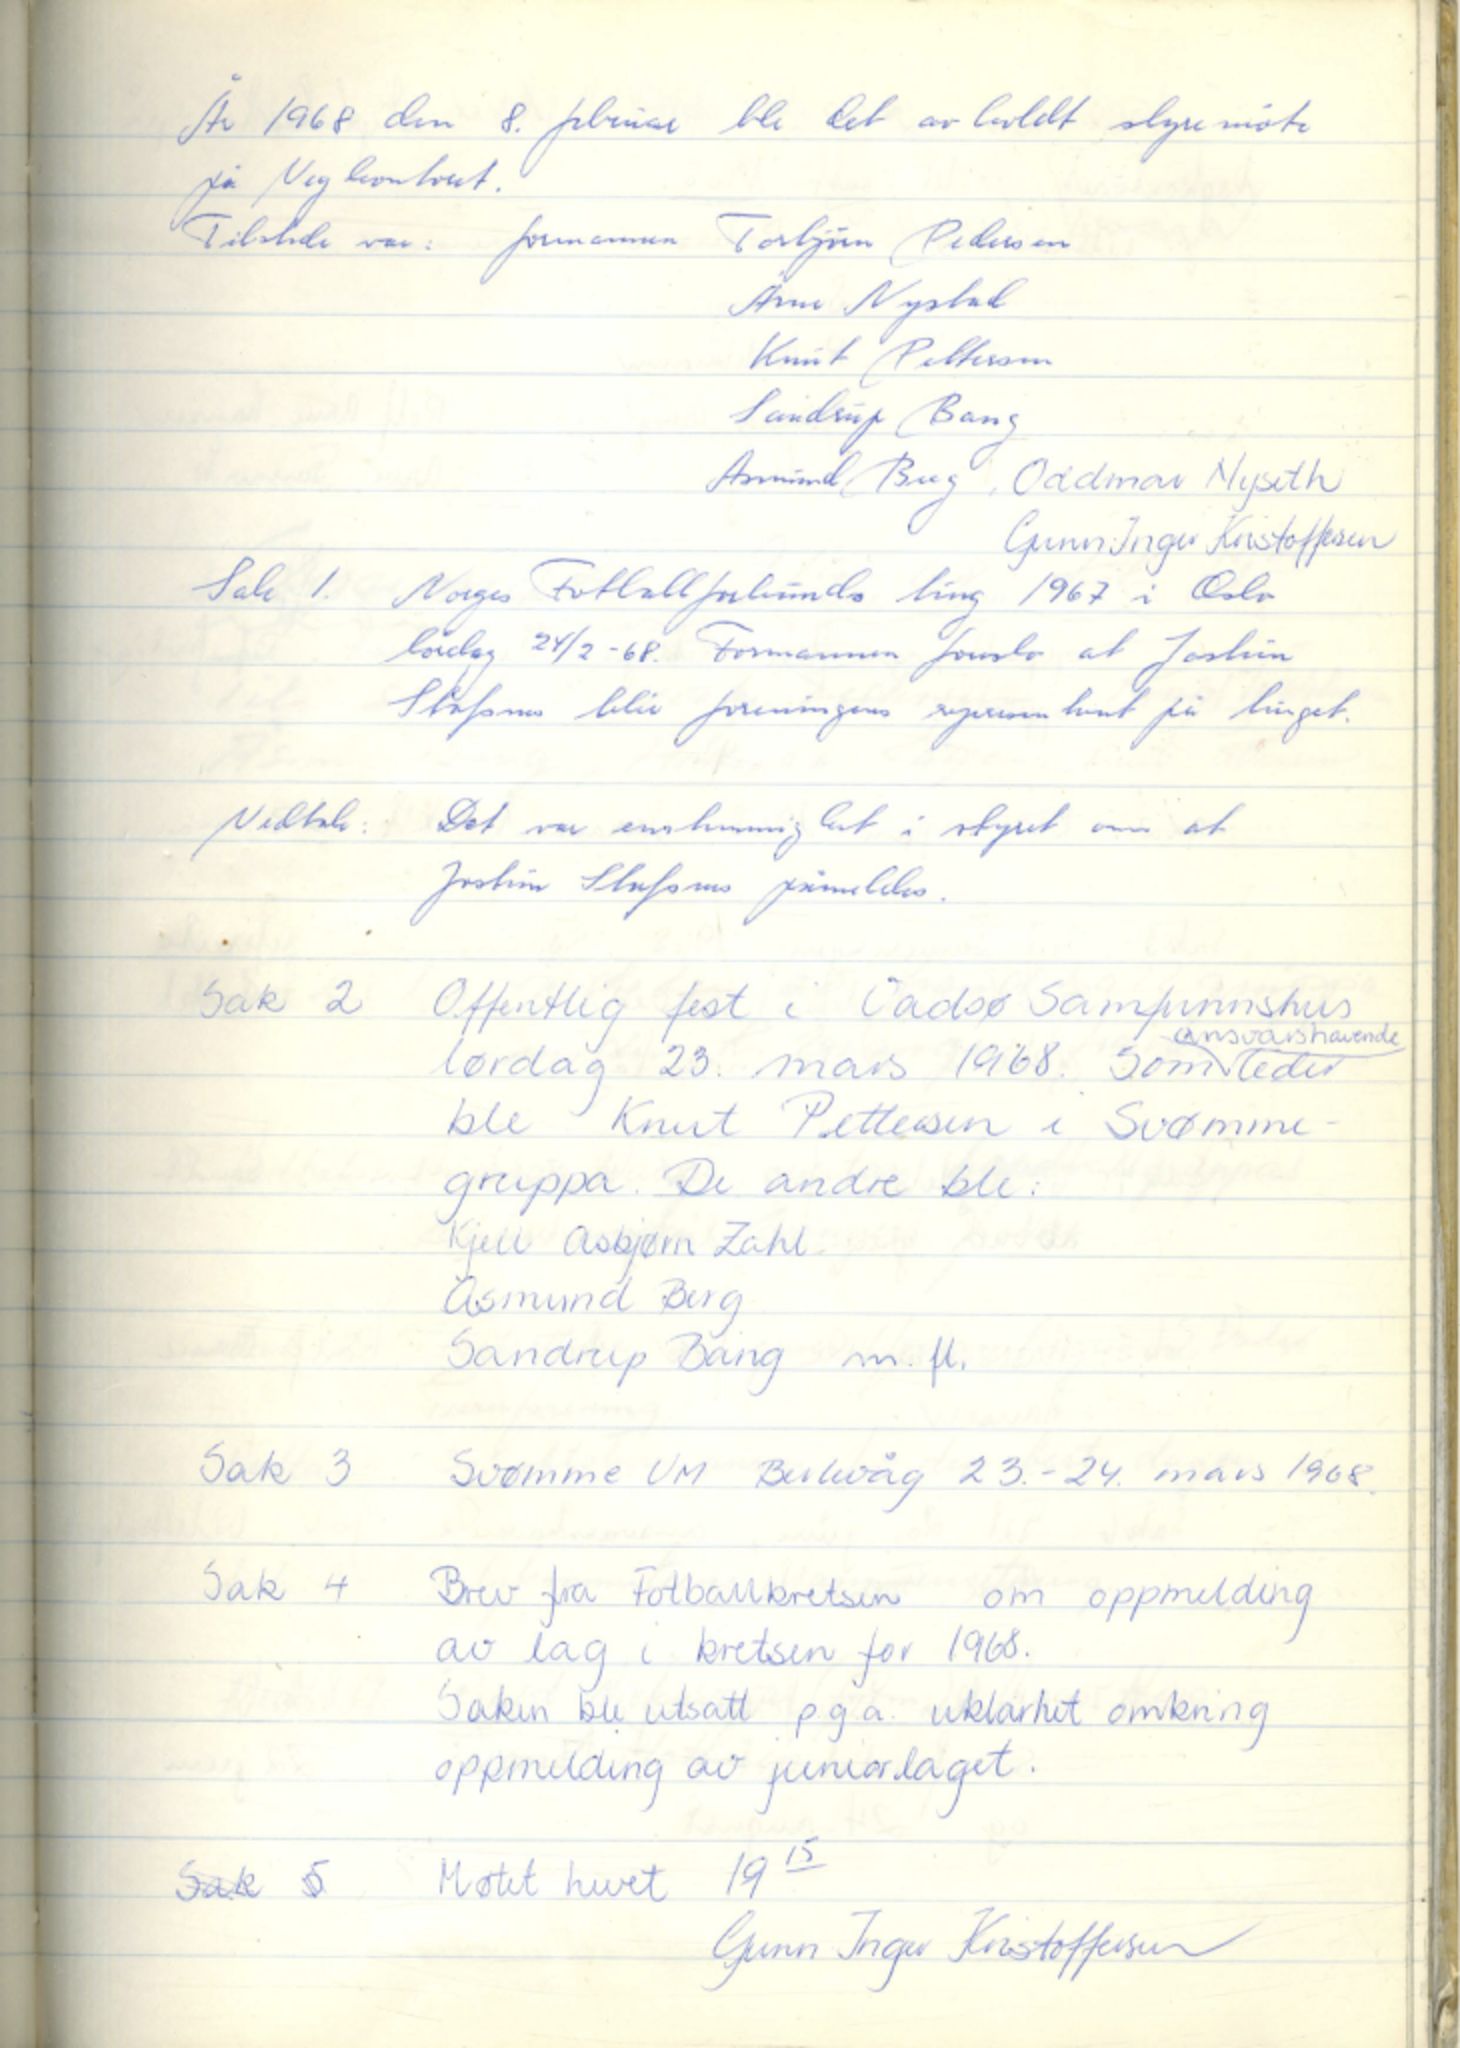 År 1968 den 8. februar ble det avholdt styremöte
på Vegkontoret.
Tilstede var: formannen Torbjörn Pedersen
Arne Nystad
Knut Pettersen
Sandrup Bang
Asmund Berg, Oddmar Myseth
Gunn-Inger Kristoffersen
Sak 1. Norges Fotballforbunds ting 1967 i Oslo
lördag 24/2-68. Formannen foreslo at Jostein
blir foreningens representant på tinget.
Vedtak: Det var enstemmighet i styret om at
Jostein påmeldes.
Sak 2 Offentlig fest i Vadsø Samfunnshus
lørdag 23. mars 1968. Som ansvarshavende leder
ble Knut Pettersen i Svømme-
gruppa. De andre ble:
Kjell Asbjørn Zahl
Asmund Berg
Sandrup Bang m.fl.
Sak 3 Svømme UM Berlevåg 23.-24. mars 1968.
Sak 4 Brev fra Fotballkretsen om oppmelding
av lag i kretsen for 1968.
Saken ble utsatt p.g.a. uklarhet omkring
oppmelding av juniorlaget.
Sak 5 Møtet hevet 19 15
Gunn Inger Kristoffersen